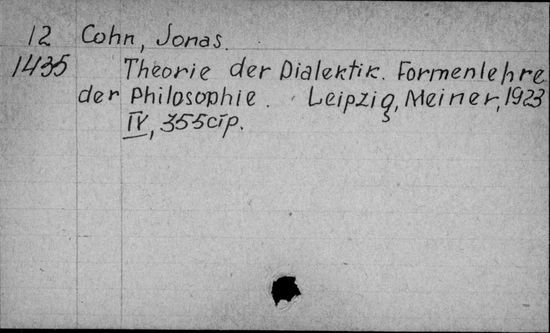 12 Cohn, Jonas.
1435 Theorie der Dialektik. Formenlehre
der Philosophie. Leipzig, Meiner, 1923
IV, 355 стр.